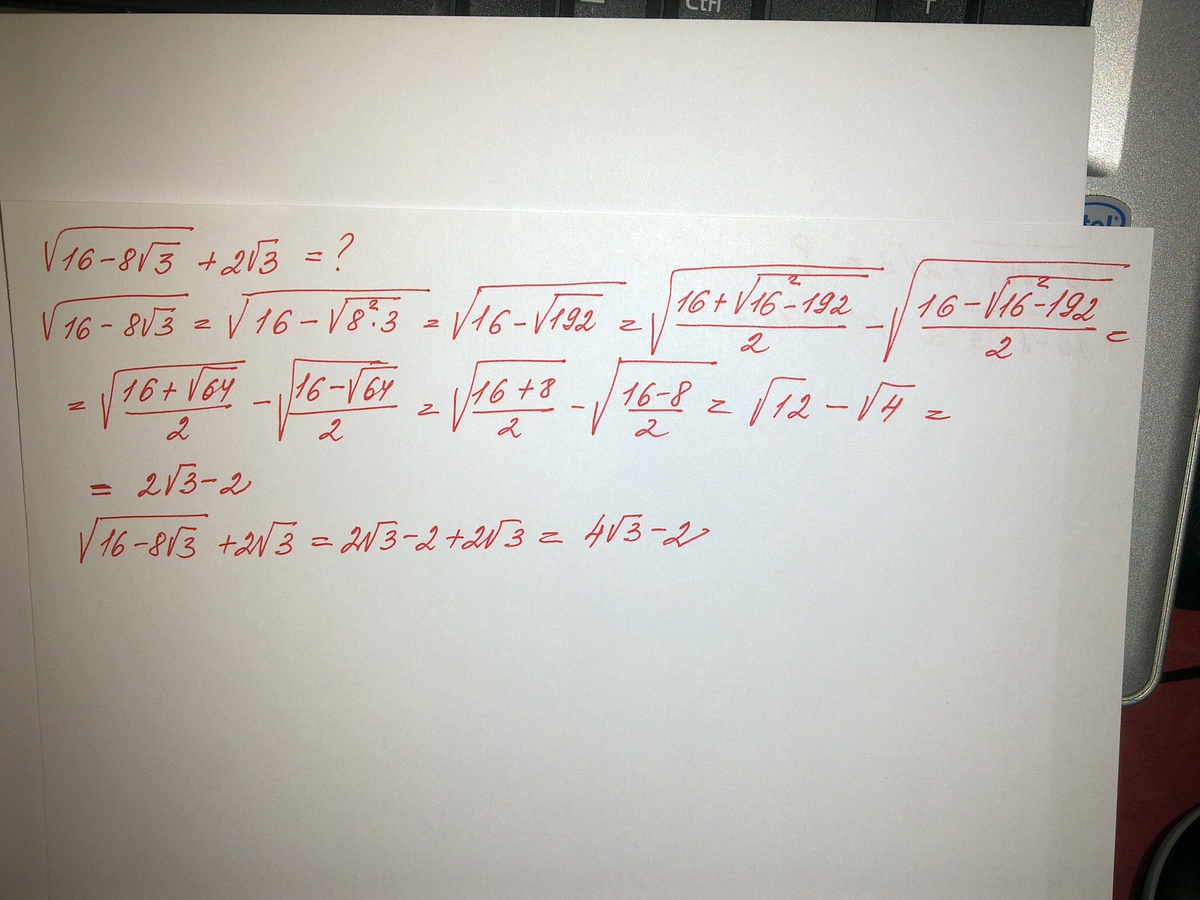 Ctrl
T
√(16-8√3) + 2√3 = ?
tel
√(16-8√3) = √(16-√(8²·3)) = √(16-√192) = √((16+√(16²-192))/2) - √((16-√(16²-192))/2) =
= √((16+√64)/2) - √((16-√64)/2) = √((16+8)/2) - √((16-8)/2) = √12 - √4 =
= 2√3-2
√(16-8√3) + 2√3 = 2√3-2+2√3 = 4√3-2